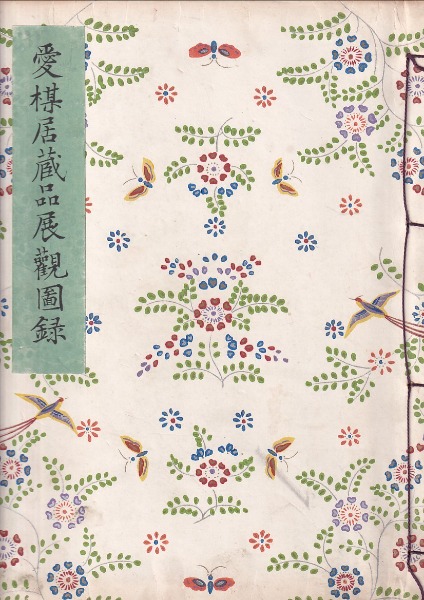 愛棋居蔵品展觀圖録